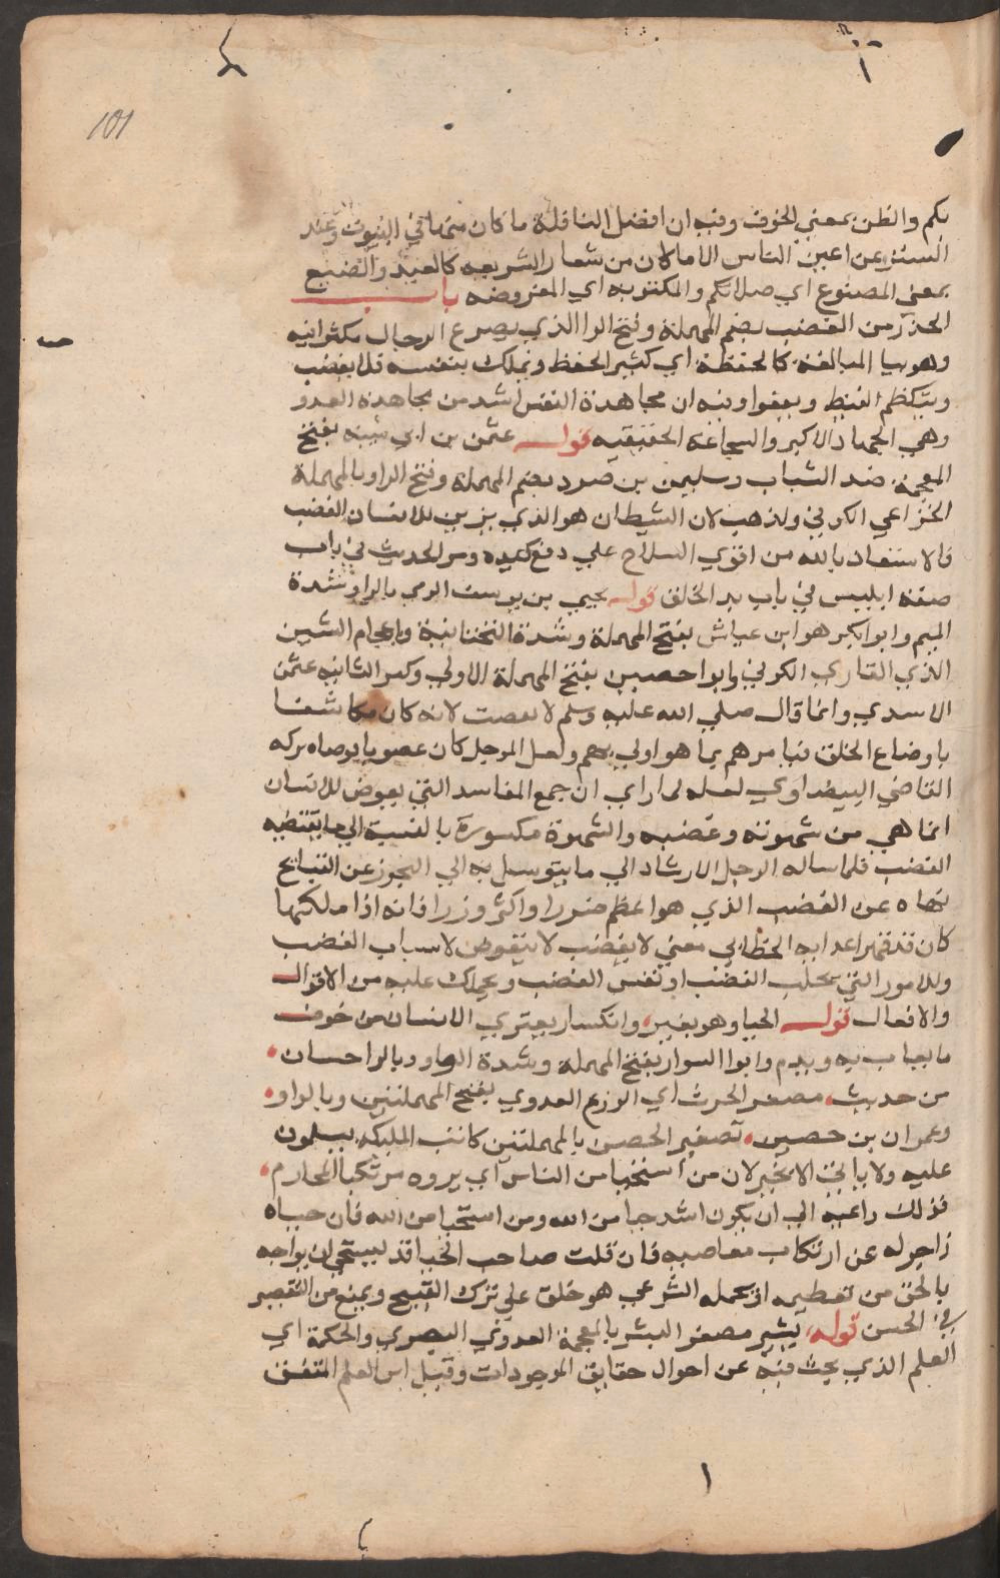 101
بكم والظن بمعني الخوف وفيه ان افضل النافلة ما كان منها في البيوت وعند
الستر عن اعين الناس الا ما كان من شعار الشريعه كالعيد والصنيع
بمعني المصنوع اي صلاتكم والمكتوبه اي المفروضه باب
الحذر من الغضب بضم المهملة وفتح الرا الذي يصرع الرجال مكثرا فيه
وهو بنا المبالغة كالحفظة اي كثير الحفظ ويملك بنفسه فلا يغضب
ويكظم الغيظ ويعفوا وفيه ان مجاهدة النفس اشد من مجاهدة العدو
وهي الجهاد الاكبر والشجاعة الحقيقيه قوله عثمن بن ابي شيبه بفتح
المعجمة ضد الشباب وسليمن بن صرد بضم المهملة وفتح الرا وبالمهملة
الخزاعي الكوفي ولذهب لان الشيطان هو الذي يزين للانسان الغضب
والاستعاذ بالله من اقوي السلاح علي دفع كيده ومر الحديث في باب
صفة ابليس في باب بد الخلق قوله يحيي بن يوسف الزمي بالزا وشدة
الميم وابوا بكر هو ابن عياش بفتح المهملة وشدة التحتانية وباعجام الشين
الذي القاري الكوفي وابوا حصين بفتح المهملة الاولي وكسر الثانيه عثمن
الاسدي وانما قال صلي الله عليه وسلم لا تغضب لانه كان مكاشفا
باوضاع الخلق فيامرهم بما هو اولي بهم ولعل الرجل كان غضوبا يوصاه بركه
القاضي البيضاوي لعله لما راي ان جمع المفاسد التي يعرض للانسان
انما هي من شهوته وغضبه والشهوة مكسورة بالنسبة الي ما يقتضيه
الغضب فلما ساله الرجل الارشاد الي ما يتوسل به الي التحرز عن القبائح
نهاه عن الغضب الذي هو اعظم ضررا واكثر وزرا فانه اذا ملكها
كان قد قهر اعدايه الخطابي معني لا يغضب لا يتعرض لاسباب الغضب
وللامور التي تجلب الغضب او نفس الغضب ويحملك عليه من الاقوال
والافعال قوله الحيا وهو تغير وانكسار يعتري الانسان من خوف
ما يعاب به ويذم وابوا السوار بفتح المهملة وشدة الواو وبالرا حسان
من حديث مصغر الحرث اي الزرع العدوي بفتح المهملتين وبالواو
وعمران بن حصين تصغير الحصن بالمهملتين كانت المليكه يسلون
عليه ولا ياتي الا بخير لان من استحيا من الناس اي يروه مرتكبا المحارم
فذلك داعية الي ان يكون اشد حيا من الله ومن استحيا من الله فان حياه
زاجر له عن ارتكاب معاصيه فان قلت صاحب الحيا قد يستحي ان يواجه
بالحق من تعظيمه اذ يحمله الشرعي هو خلق علي ترك القبيح ويمنع من التقصير
في الحسن قوله بشير مصغر البشر بالمعجمة العدوي البصري والحكمة اي
العلم الذي يبحث فيه عن احوال حقايق الموجودات وقيل اس العلم المتقن